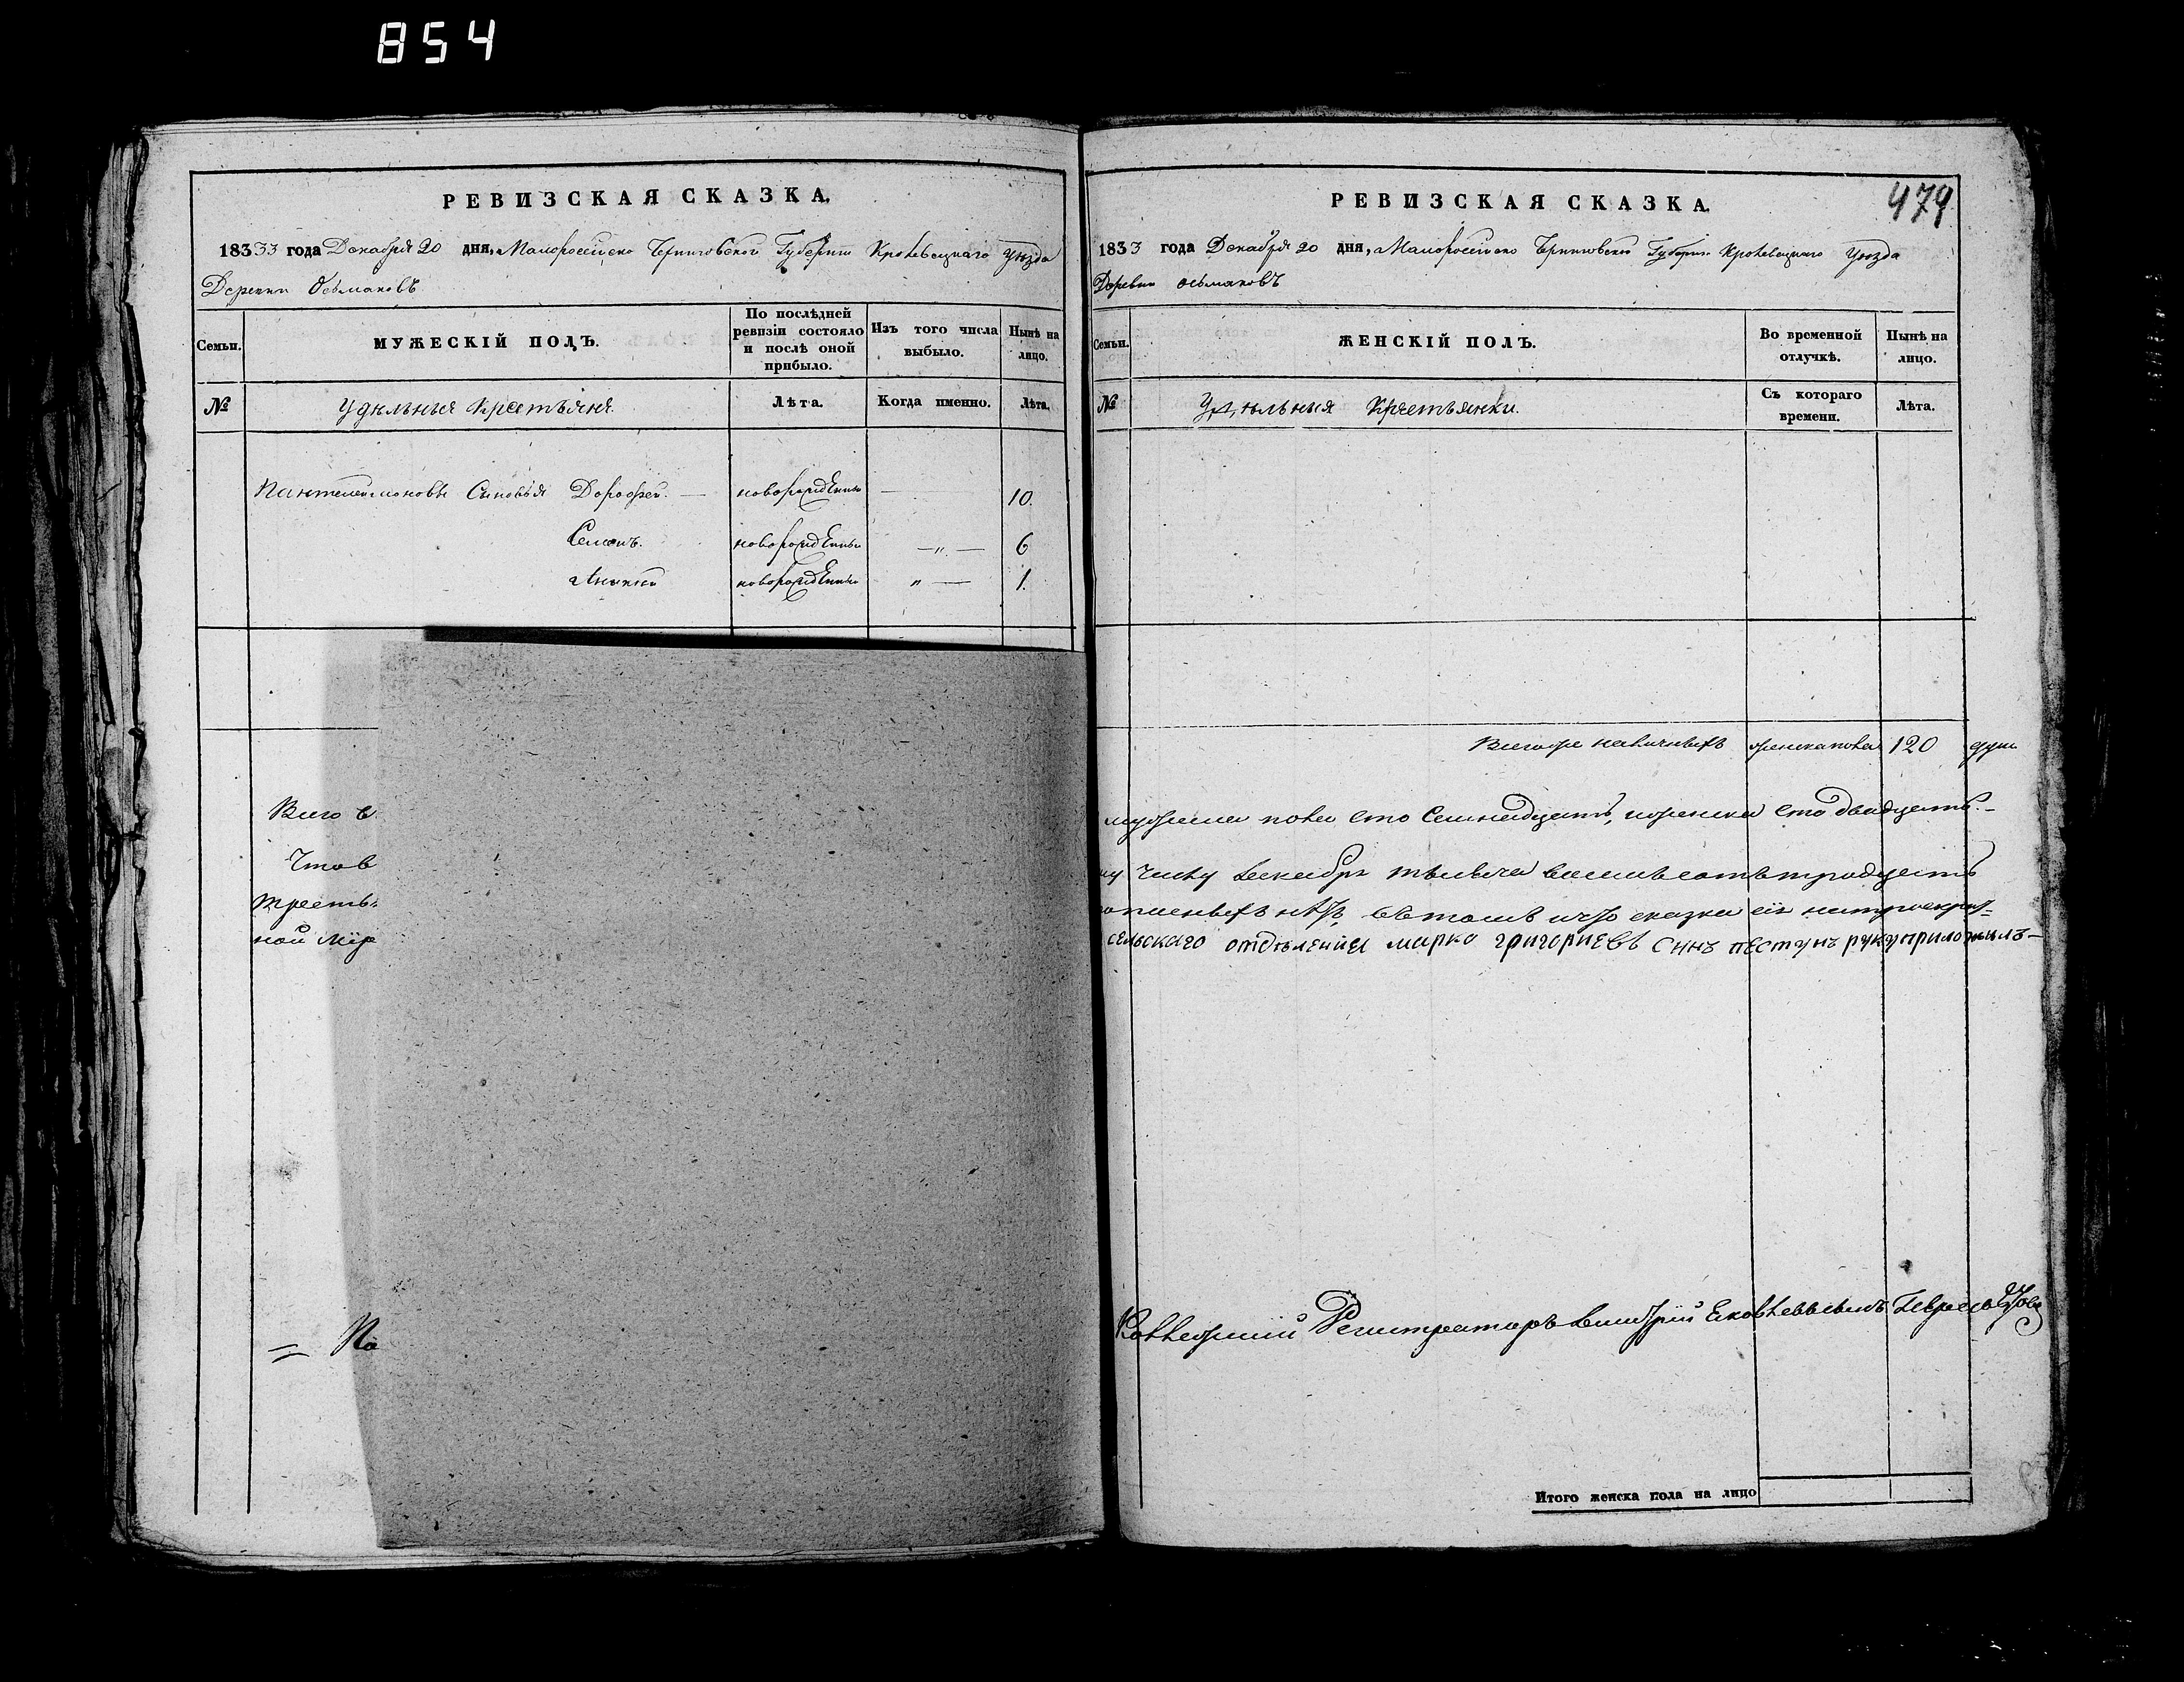 854
РЕВИЗСКАЯ СКАЗКА.
1833 года Декабря 20 дня, Малороссійско Черниговской Губерніи Кролевецкаго Уѣзда
Деревни Осьмаковъ
Семьи.
МУЖЕСКІЙ ПОЛЪ.
По послѣдней ревизіи состояло и послѣ оной прибыло.
Изъ того числа выбыло.
Нынѣ на лицо.
№
Удѣльныя Крестьяня.
Лѣта.
Когда именно.
Лѣта.
Пантелеймоновы Сыновья Дорофей. — новорожденный — 10.
Семенъ. новорожденный —„— 6
Ананий новорожденный „— 1.
Всего в
Что в
треть
ной Мір
= Ко
РЕВИЗСКАЯ СКАЗКА.
479
1833 года Декабря 20 дня, Малороссійско Черниговской Губерніи Кролевецкаго Уѣзда
Деревни Осьмаковъ
Семьи.
ЖЕНСКІЙ ПОЛЪ.
Во временной отлучкѣ.
Нынѣ на лицо.
№
Удѣльныя Крестьянки.
Съ котораго времени.
Лѣта.
Всего же наличныхъ женска пола 120 душ
мужеска пола сто Семнадцать, женска сто двадцать.-
му числу Декабря мѣсяца восемьсотъ тридцать
нѣтъ, въ томъ сказки сій
сельскаго отдѣления марко григориевъ синъ пестунъ руку приложилъ-
Коллежскій Регистраторъ Дмитрій Яковлевъ сынъ
Итого женска пола на лицо